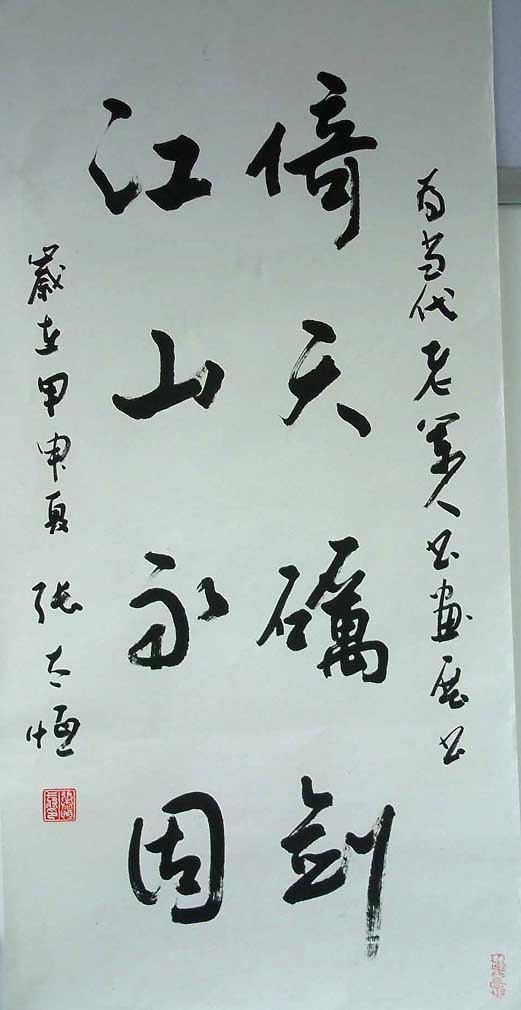 为当代老军人书画展书
倚天礪剑
江山永固
嵗在甲申夏 张太恒